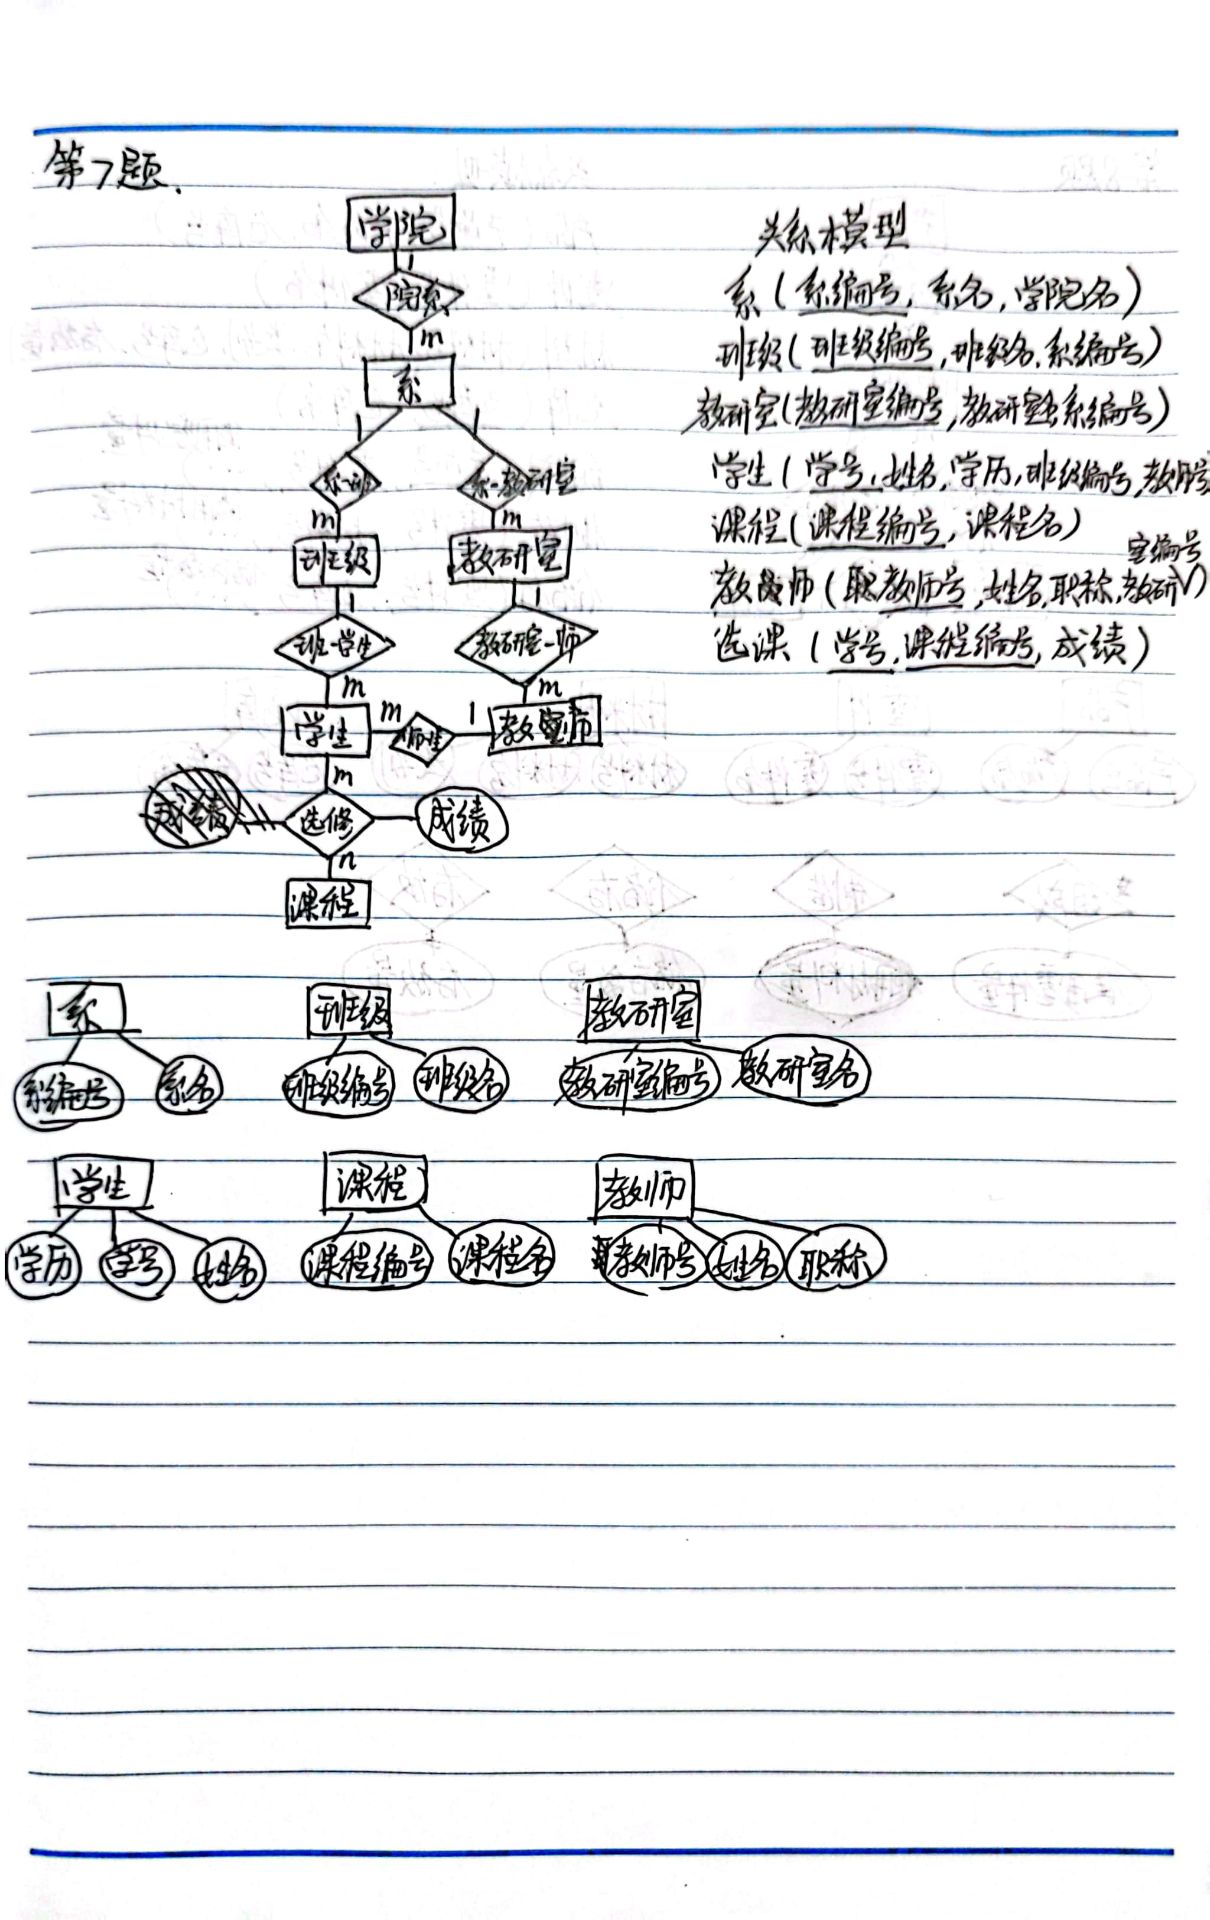 第7题.
学院
1
院系
m
系
1 1
系-班 系-教研室
m m
班级 教研室
1 1
班-学生 教研室-师
m m
学生 m 师生 1 教师
m
选修 成绩
n
课程
关系模型
系(系编号,系名,学院名)
班级(班级编号,班级名,系编号)
教研室(教研室编号,教研室名,系编号)
学生(学号,姓名,学历,班级编号,教师号
课程(课程编号,课程名)
室编号
教师(教师号,姓名,职称,教研)
选课(学号,课程编号,成绩)
系 班级 教研室
系编号 系名 班级编号 班级名 教研室编号 教研室名
学生 课程 教师
学历 学号 姓名 课程编号 课程名 教师号 姓名 职称